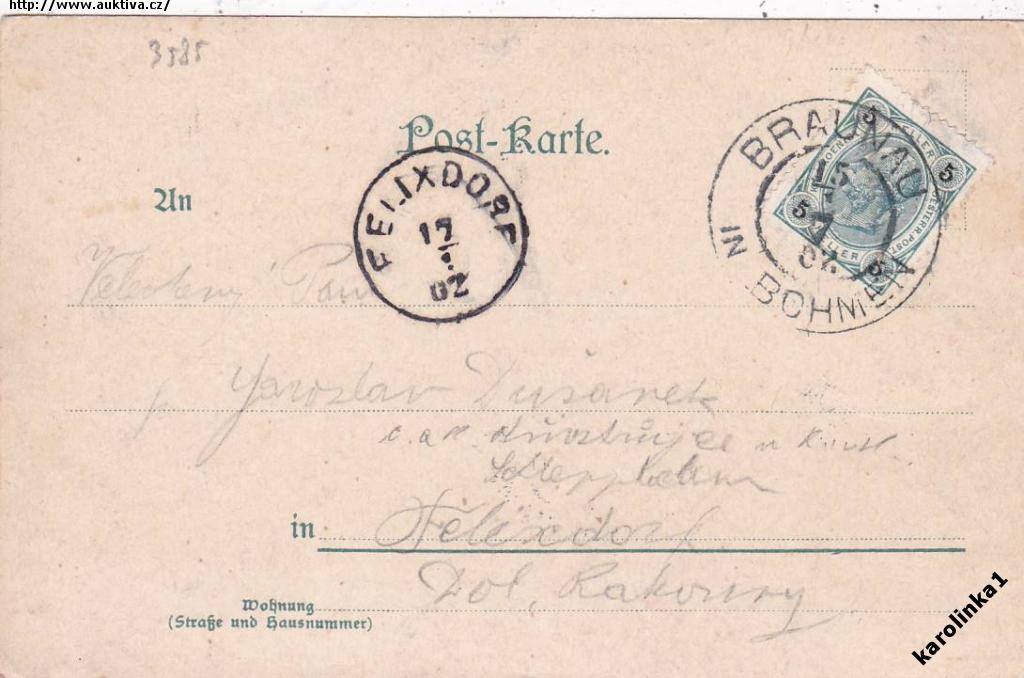 http://www.auktiva.cz/
3585
Post-Karte.
BRAUNAU
15
7
02
IN BÖHMEN
5 5 5 5
HELLER HELLER
OESTERR. POST
FELIXDORF
17
02
An
Jaroslav Dušánek
c. a k.
in Felixdorf
Dol. Rakousy
Wohnung
(Straße und Hausnummer)
karolinka1